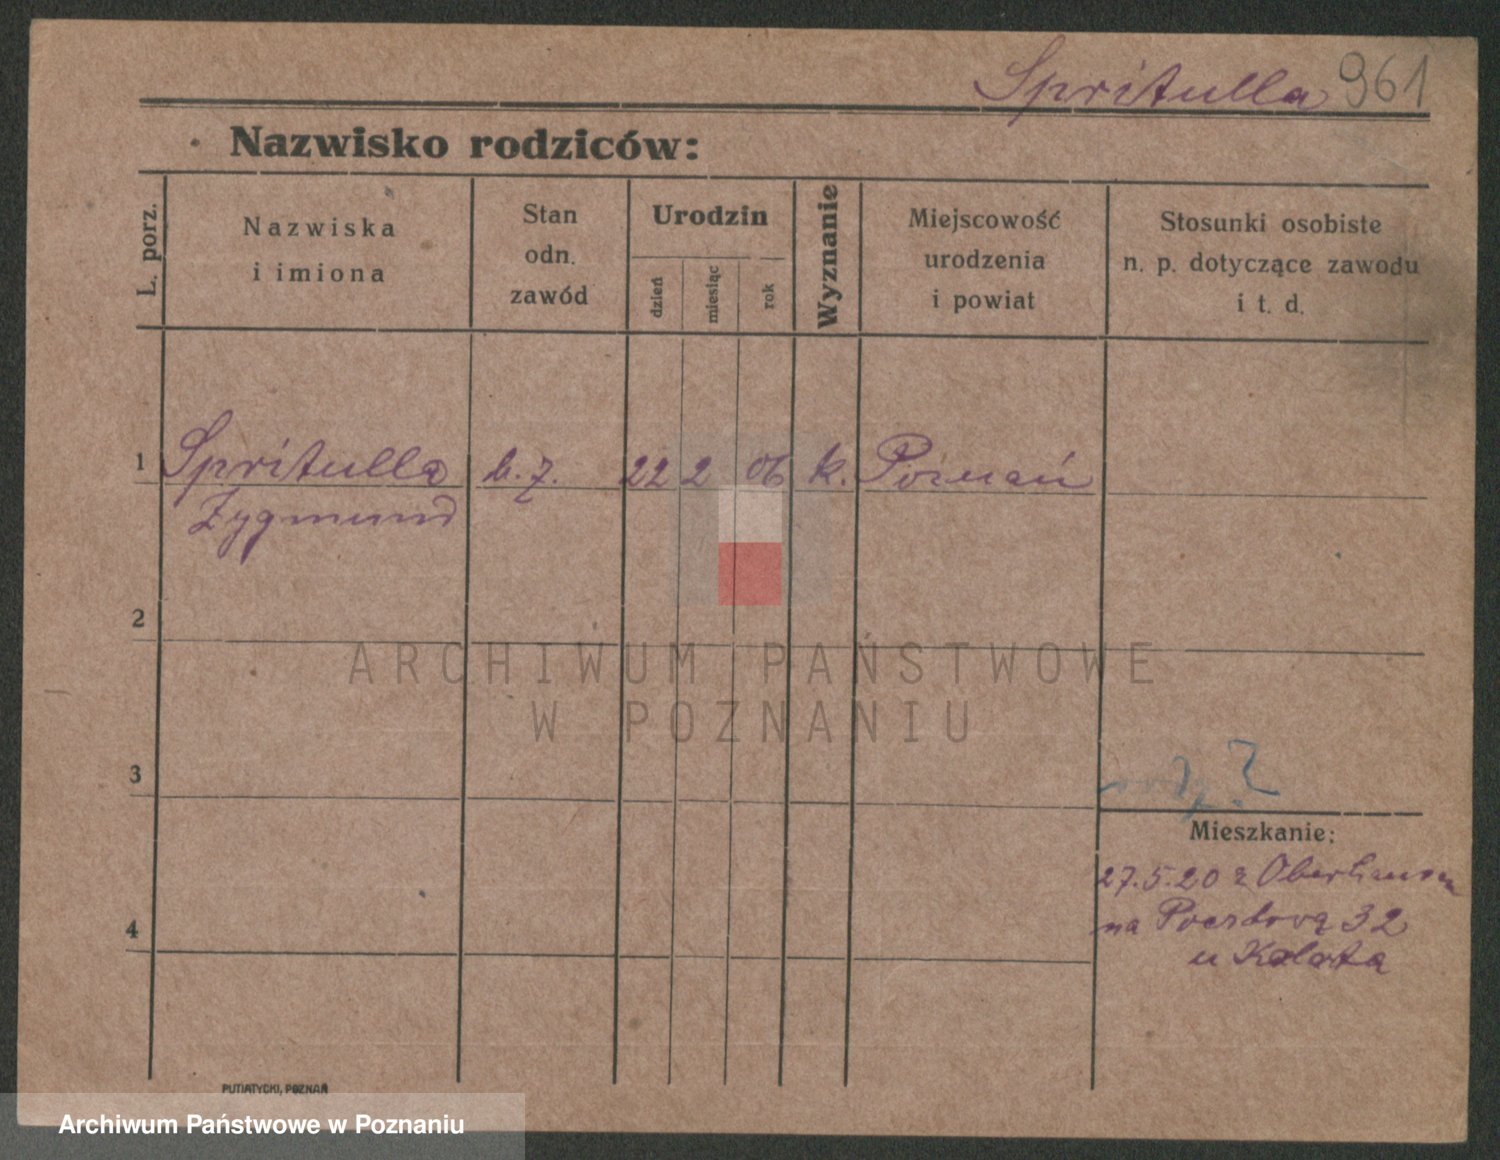 Spritulla 961
Nazwisko rodziców:
L. porz.
Nazwiska
i imiona
Stan
odn.
zawód
Urodzin
dzień
miesiąc
rok
Wyznanie
Miejscowość
urodzenia
i powiat
Stosunki osobiste
n. p. dotyczące zawodu
i t. d.
1 Spritulla b. z. 22 2 06 k. Poznań
Zygmund
2
ARCHIWUM PAŃSTWOWE
W POZNANIU
3
Mieszkanie:
27.5.20 z Oberhausen
na Pocztową 32
4
u Kalota
PUTIATYCKI, POZNAŃ
Archiwum Państwowe w Poznaniu